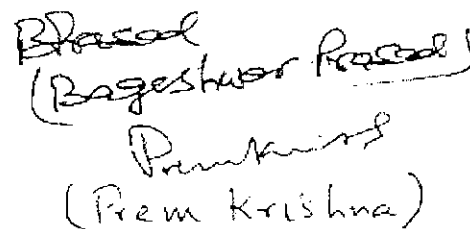 BPrasad
(Bageshwor Prasad)
Premkrishna
(Prem Krishna)